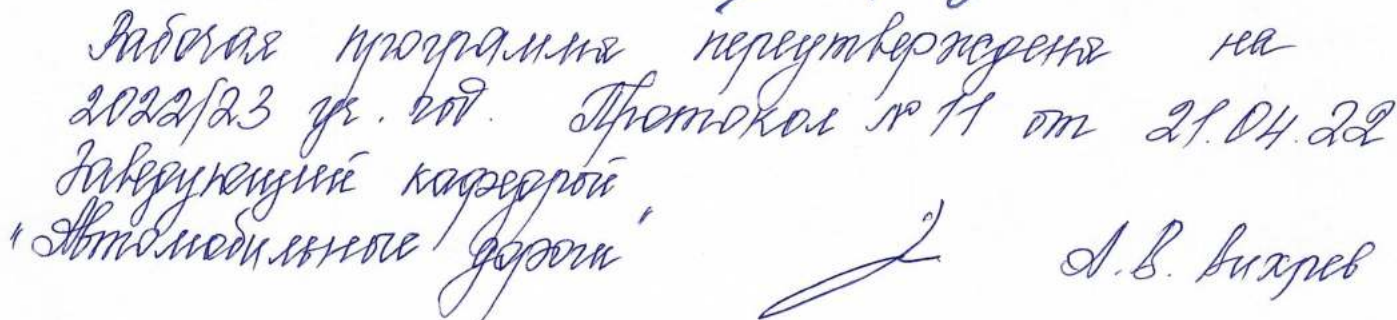 Рабочая программа переутверждена на
2022/23 уч. год. Протокол № 11 от 21.04.22
Заведующий кафедрой
"Автомобильные дороги" А.В. Вихрев